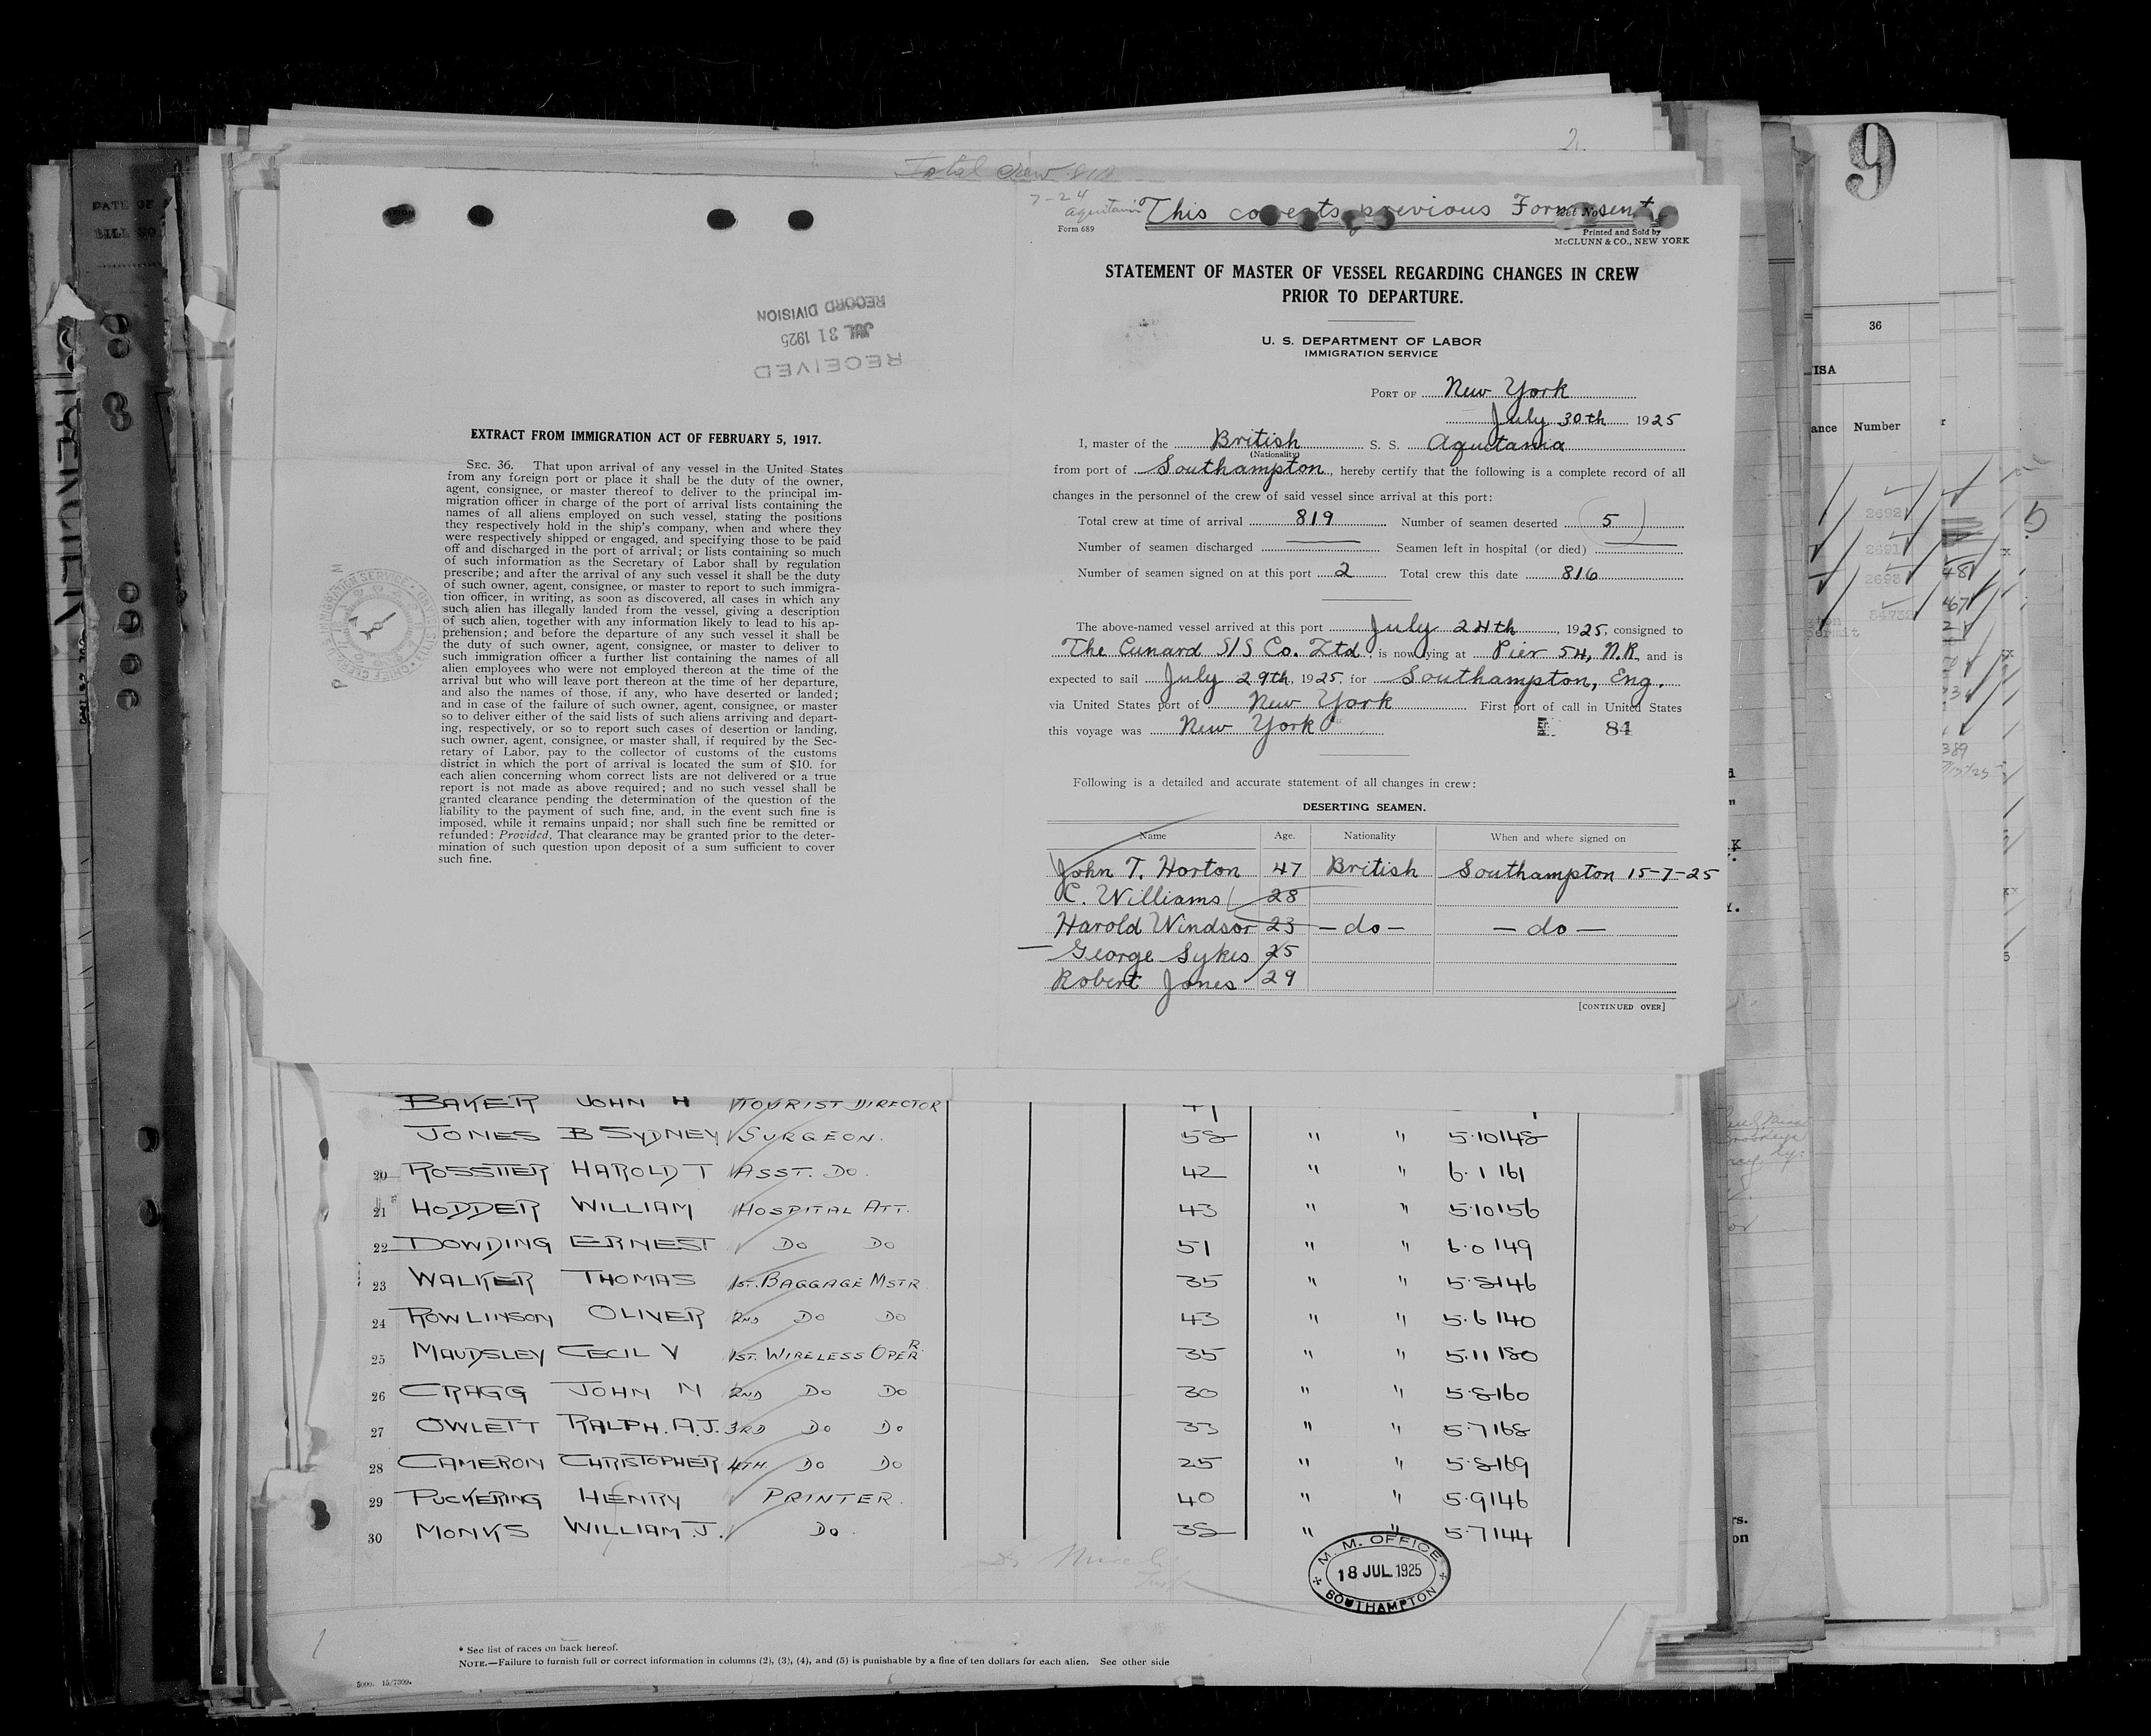 Total crew
2.
9
DATE OF
BILL NO
7-24
Aquitania
This corrects previous Form sent
Form 689
Printed and Sold by
McCLUNN & CO., NEW YORK
STATEMENT OF MASTER OF VESSEL REGARDING CHANGES IN CREW
PRIOR TO DEPARTURE.
U. S. DEPARTMENT OF LABOR
IMMIGRATION SERVICE
PORT OF New York
July 30th 1925
I, master of the British S. S. Aquitania
(Nationality)
from port of Southampton, hereby certify that the following is a complete record of all
changes in the personnel of the crew of said vessel since arrival at this port:
Total crew at time of arrival 819 Number of seamen deserted 5
Number of seamen discharged Seamen left in hospital (or died)
Number of seamen signed on at this port 2 Total crew this date 816
The above-named vessel arrived at this port July 24th, 1925, consigned to
The Cunard S/S Co. Ltd, is now lying at Pier 54, N.R. and is
expected to sail July 29th, 1925, for Southampton, Eng.
via United States port of New York First port of call in United States
this voyage was New York
84
Following is a detailed and accurate statement of all changes in crew:
DESERTING SEAMEN.
Name Age. Nationality When and where signed on
John T. Horton 47 British Southampton 15-7-25
C. Williams 28
Harold Windsor 23 - do - - do -
George Sykes 25
Robert Jones 29
[CONTINUED OVER]
RECEIVED
JUL 31 1925
RECORD DIVISION
EXTRACT FROM IMMIGRATION ACT OF FEBRUARY 5, 1917.
SEC. 36. That upon arrival of any vessel in the United States
from any foreign port or place it shall be the duty of the owner,
agent, consignee, or master thereof to deliver to the principal im-
migration officer in charge of the port of arrival lists containing the
names of all aliens employed on such vessel, stating the positions
they respectively hold in the ship's company, when and where they
were respectively shipped or engaged, and specifying those to be paid
off and discharged in the port of arrival; or lists containing so much
of such information as the Secretary of Labor shall by regulation
prescribe; and after the arrival of any such vessel it shall be the duty
of such owner, agent, consignee, or master to report to such immigra-
tion officer, in writing, as soon as discovered, all cases in which any
such alien has illegally landed from the vessel, giving a description
of such alien, together with any information likely to lead to his ap-
prehension; and before the departure of any such vessel it shall be
the duty of such owner, agent, consignee, or master to deliver to
such immigration officer a further list containing the names of all
alien employees who were not employed thereon at the time of the
arrival but who will leave port thereon at the time of her departure,
and also the names of those, if any, who have deserted or landed;
and in case of the failure of such owner, agent, consignee, or master
so to deliver either of the said lists of such aliens arriving and depart-
ing, respectively, or so to report such cases of desertion or landing,
such owner, agent, consignee, or master shall, if required by the Sec-
retary of Labor, pay to the collector of customs of the customs
district in which the port of arrival is located the sum of $10. for
each alien concerning whom correct lists are not delivered or a true
report is not made as above required; and no such vessel shall be
granted clearance pending the determination of the question of the
liability to the payment of such fine, and, in the event such fine is
imposed, while it remains unpaid; nor shall such fine be remitted or
refunded: Provided, That clearance may be granted prior to the deter-
mination of such question upon deposit of a sum sufficient to cover
such fine.
BAKER JOHN H TOURIST DIRECTOR
JONES B SYDNEY SURGEON. 58 " " 5.10 148
20 ROSSITER HAROLD T ASST. DO. 42 " " 6.1 161
21 HODDER WILLIAM HOSPITAL ATT. 43 " " 5.10 156
22 DOWDING ERNEST DO DO 51 " " 6.0 149
23 WALKER THOMAS 1ST. BAGGAGE MSTR. 35 " " 5.8 146
24 ROWLINSON OLIVER 2ND DO DO 43 " " 5.6 140
25 MAUDSLEY CECIL V 1ST. WIRELESS OPERR 35 " " 5.11 180
26 CRAGG JOHN M 2ND DO DO 30 " " 5.8 160
27 OWLETT RALPH. A.J. 3RD DO DO 33 " " 5.7 168
28 CAMERON CHRISTOPHER 4TH. DO DO 25 " " 5.8 169
29 PUCKERING HENRY PRINTER. 40 " " 5.9 146
30 MONKS WILLIAM. J. DO. 38 " " 5.7 144
M. M. OFFICE
18 JUL 1925
SOUTHAMPTON
* See list of races on back hereof.
NOTE.—Failure to furnish full or correct information in columns (2), (3), (4), and (5) is punishable by a fine of ten dollars for each alien. See other side
36
ISA
ance Number
2692
2691
2693
48
67
389